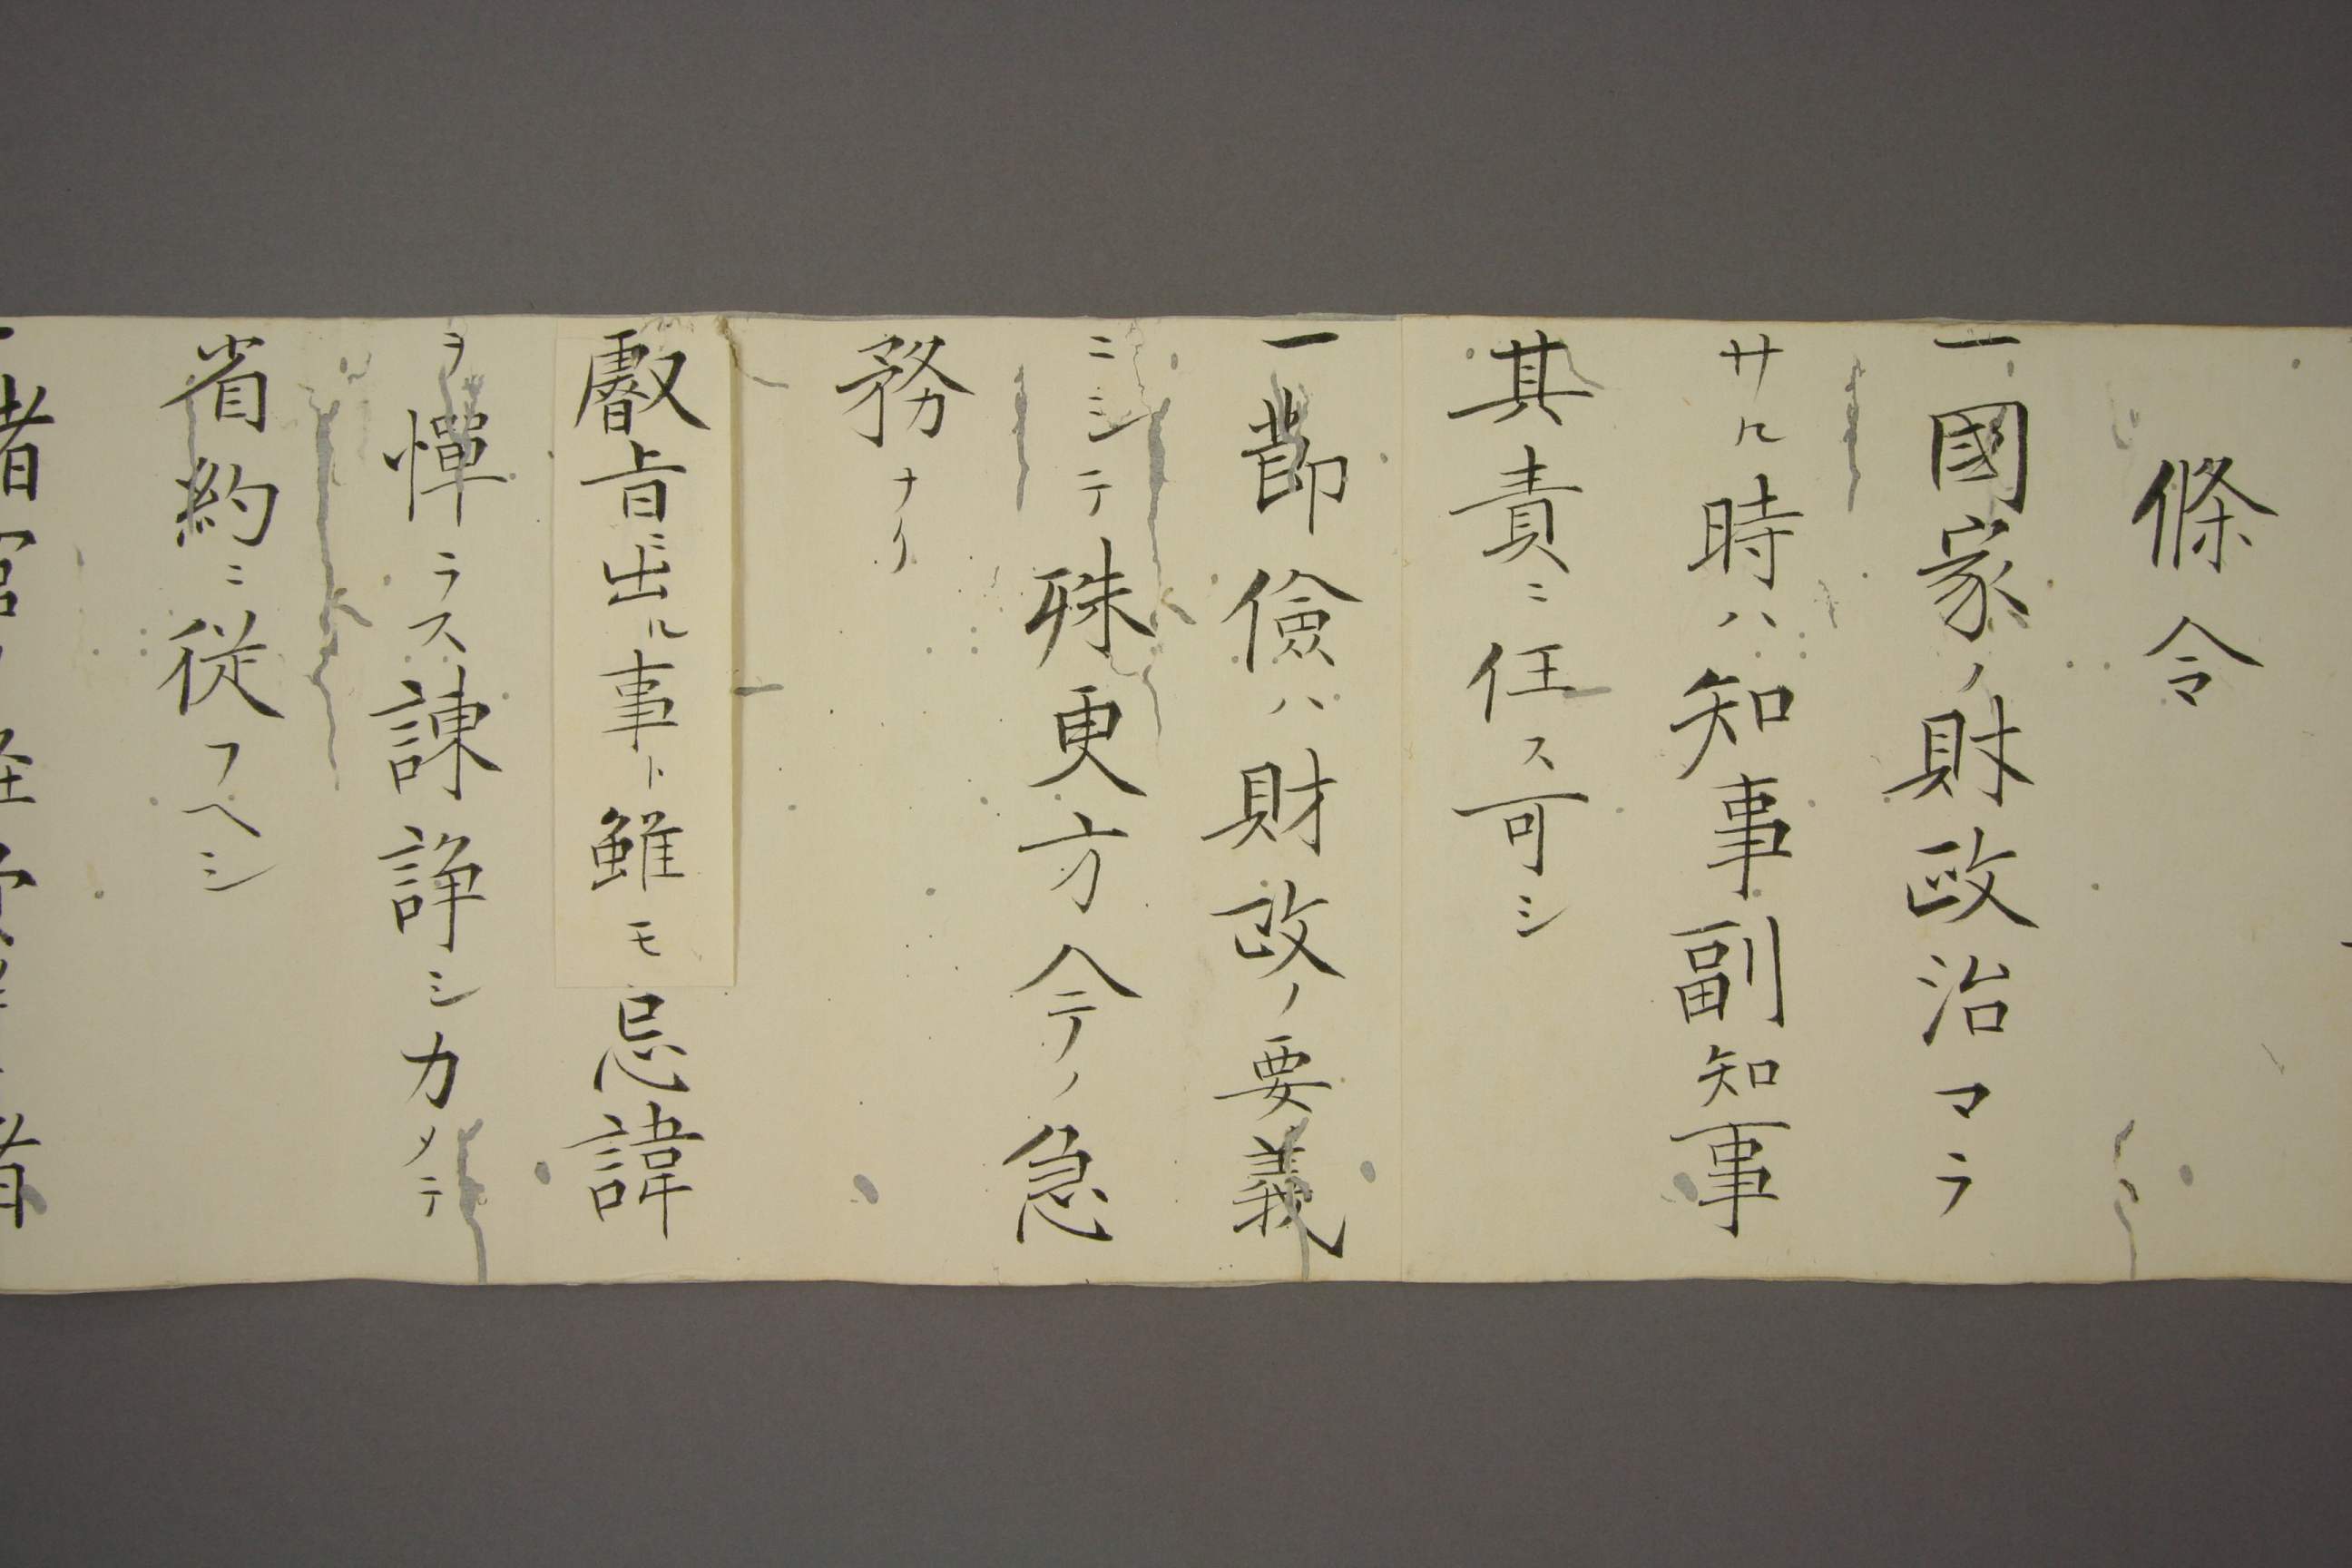 條令
一國家ノ財政治マラ
サル時ハ知事副知事
其責ニ任ス可シ
一節儉ハ財政ノ要義
ニシテ殊更方今ノ急
務ナリ
叡旨ニ出ル事ト雖モ忌諱
ヲ憚ラス諌諍シカメテ
省約ニ従フヘシ